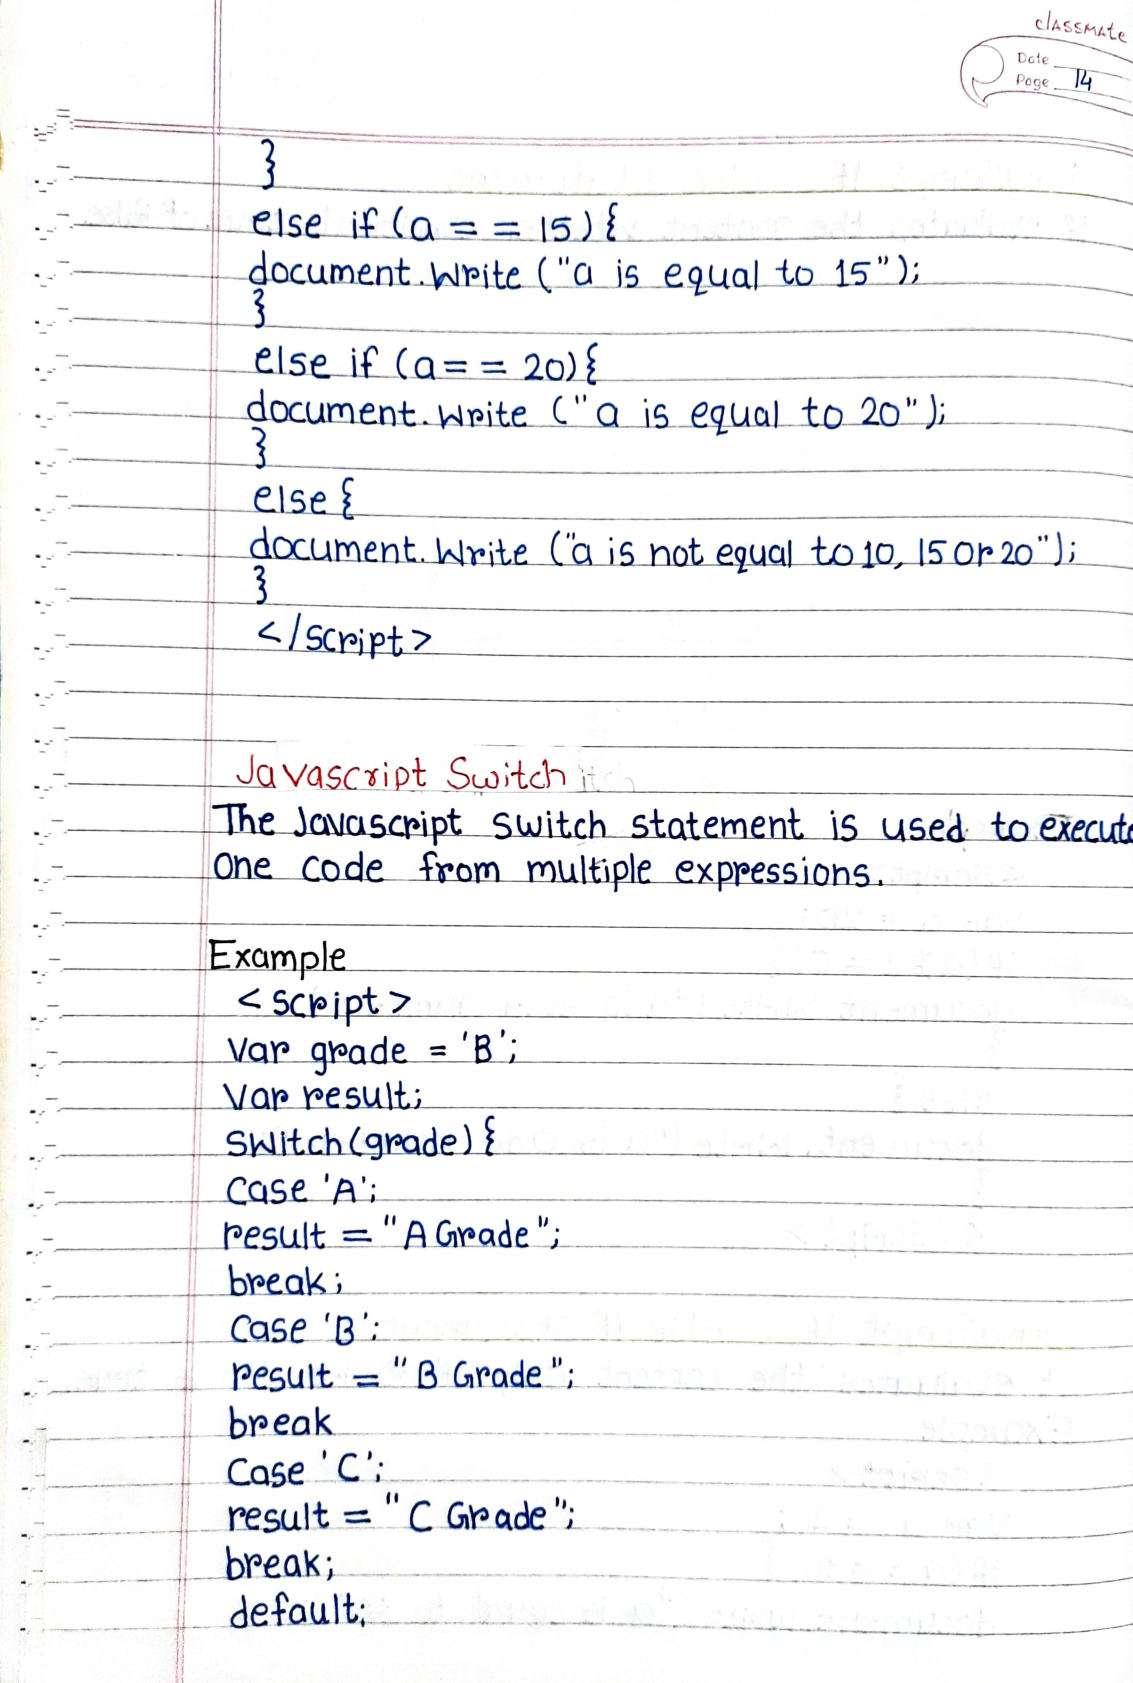 classmate
Date
Page 14
}
else if (a = = 15) {
document.Write ("a is equal to 15");
}
else if (a = = 20) {
document.Write ("a is equal to 20");
}
else {
document.Write ("a is not equal to 10, 15 or 20");
}
</script>
Javascript Switch
The Javascript switch statement is used to execute
One code from multiple expressions.
Example
<script>
Var grade = 'B';
Var result;
Switch(grade) {
Case 'A';
result = "A Grade";
break;
Case 'B':
result = "B Grade";
break
Case 'C';
result = "C Grade";
break;
default;